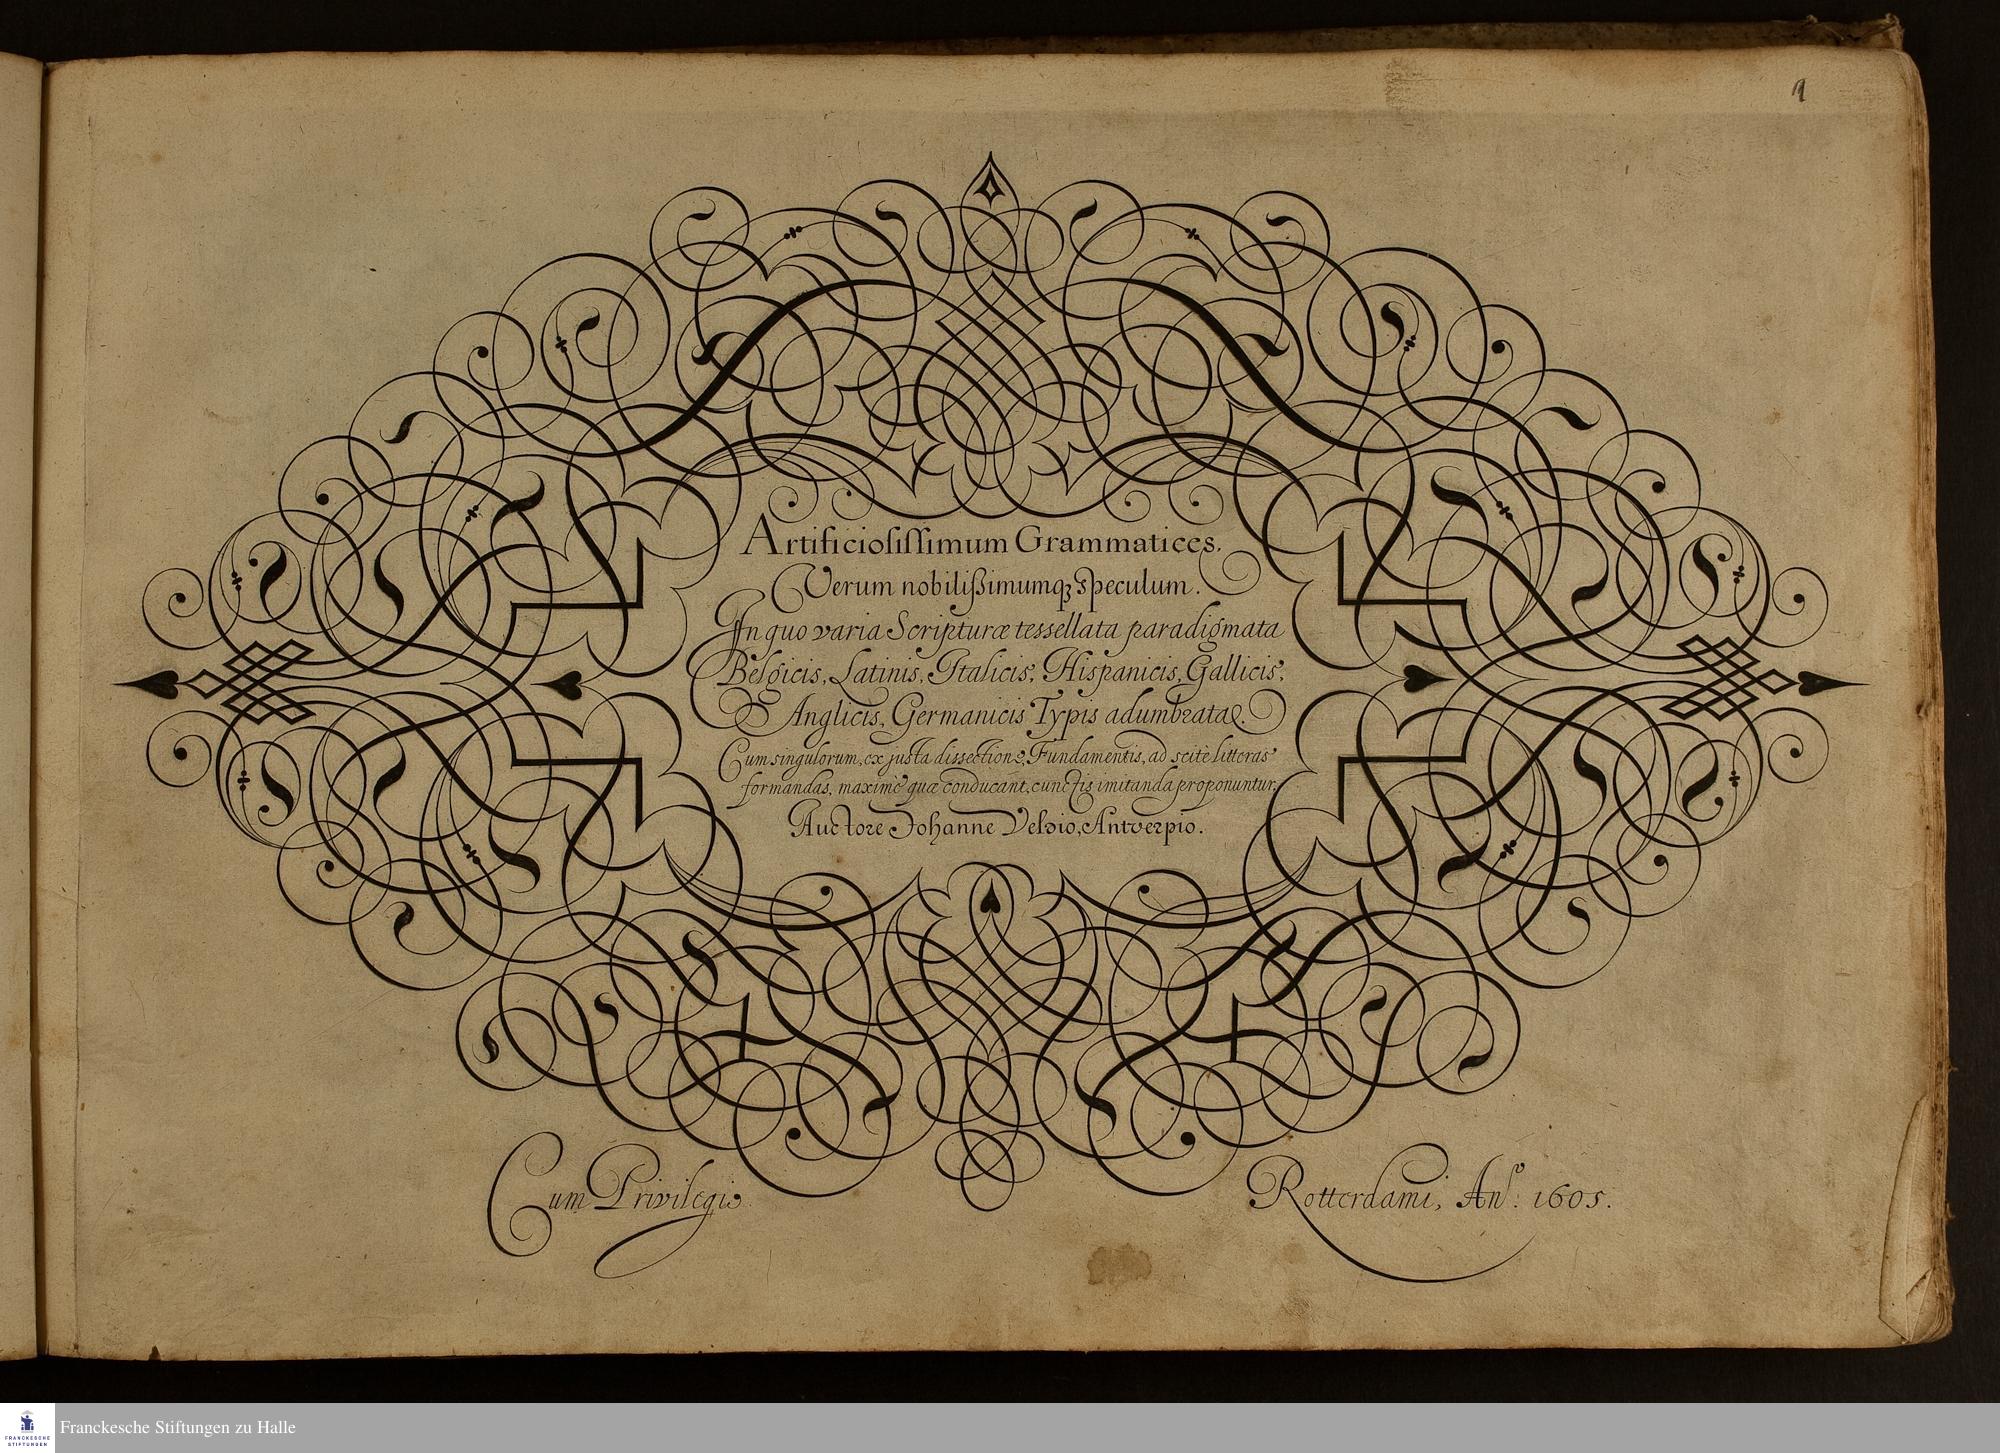 1
Artificiosissimum Grammatices.
Verum nobilissimumq; Speculum.
In quo varia Scripturæ tessellata paradigmata
Belgicis, Latinis, Italicis, Hispanicis, Gallicis,
& Anglicis, Germanicis Typis adumbratæ.
Cum singulorum, ex justa dissectione, Fundamentis, ad scitè litteras
formandas, maximè quæ conducant, cunctis imitanda proponuntur.
Auctore Johanne Veldio, Antverpio.
Cum Privilegio
Rotterdami, Anº. 1605.
Franckesche Stiftungen zu Halle
FRANCKESCHE
STIFTUNGEN